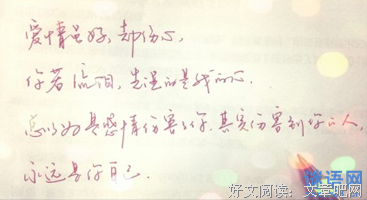 爱情虽好，却伤心，
你若流泪，先湿的是我的心.
总以为是感情伤害了你，其实伤害到你的人，
永远是你自己.
好文阅读：文章吧网